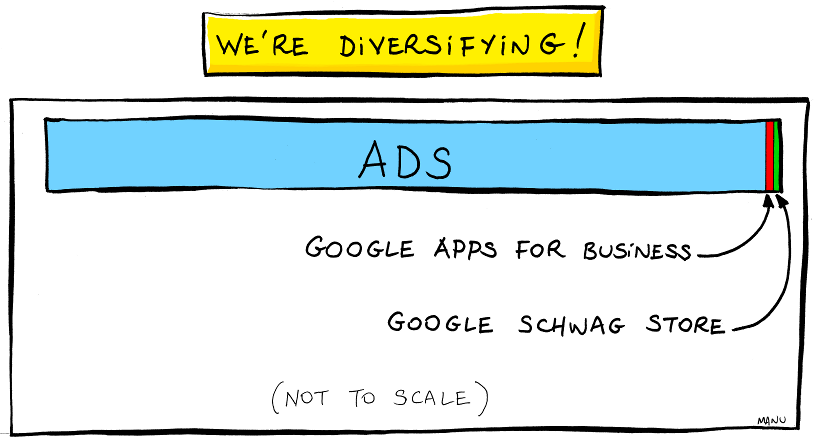 WE'RE DIVERSIFYING!
ADS
GOOGLE APPS FOR BUSINESS
GOOGLE SCHWAG STORE
(NOT TO SCALE)
MANU